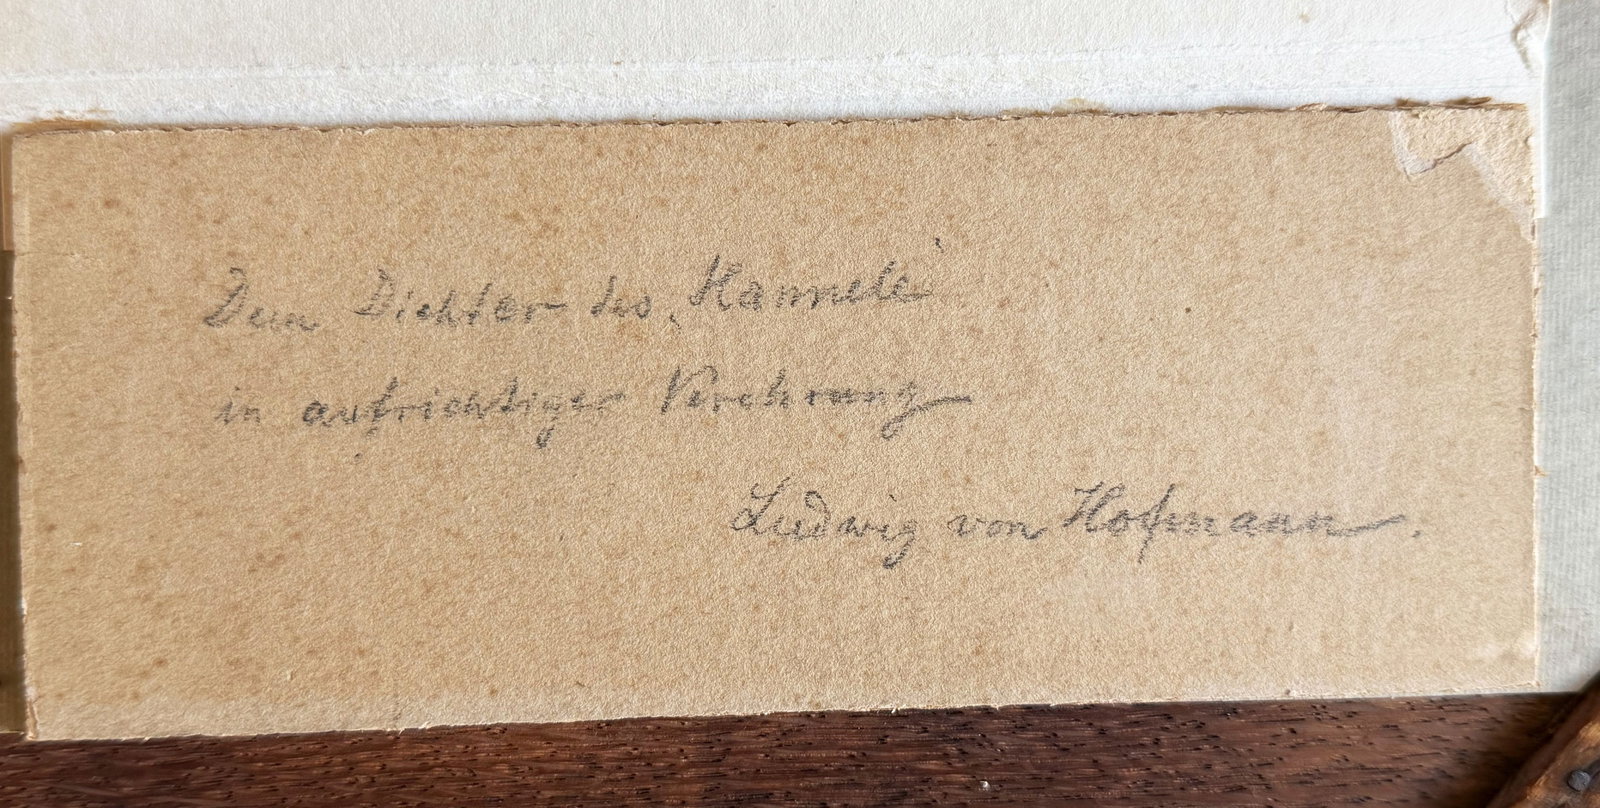 Dem Dichter des ‚Hannele‘
in aufrichtiger Verehrung
Ludwig von Hofmann.